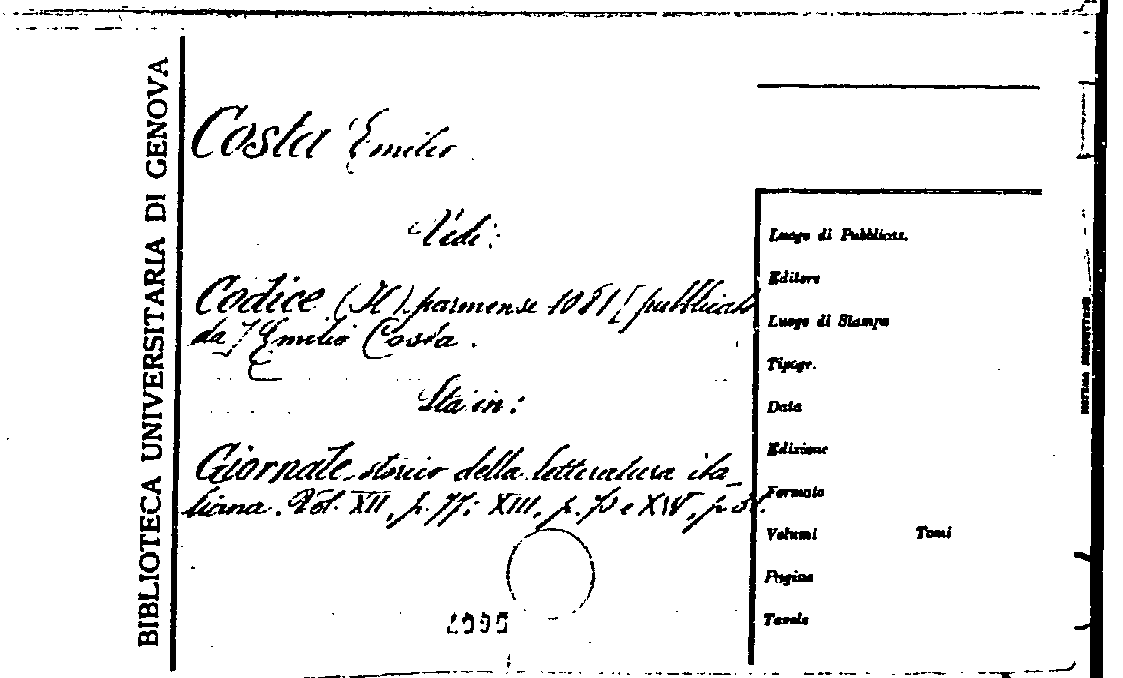 BIBLIOTECA UNIVERSITARIA DI GENOVA
Costa Emilio
Vedi:
Codice (Il) parmense 1081 [pubblicato
da] Emilio Costa.
Sta in:
Giornale storico della letteratura ita-
liana. Vol. XII, p. 77; XIII, p. 70 e XIV, p. 31.
Luogo di Pubblicaz.
Editore
Luogo di Stampa
Tipogr.
Data
Edizione
Formato
Volumi Tomi
Pagine
Tavole